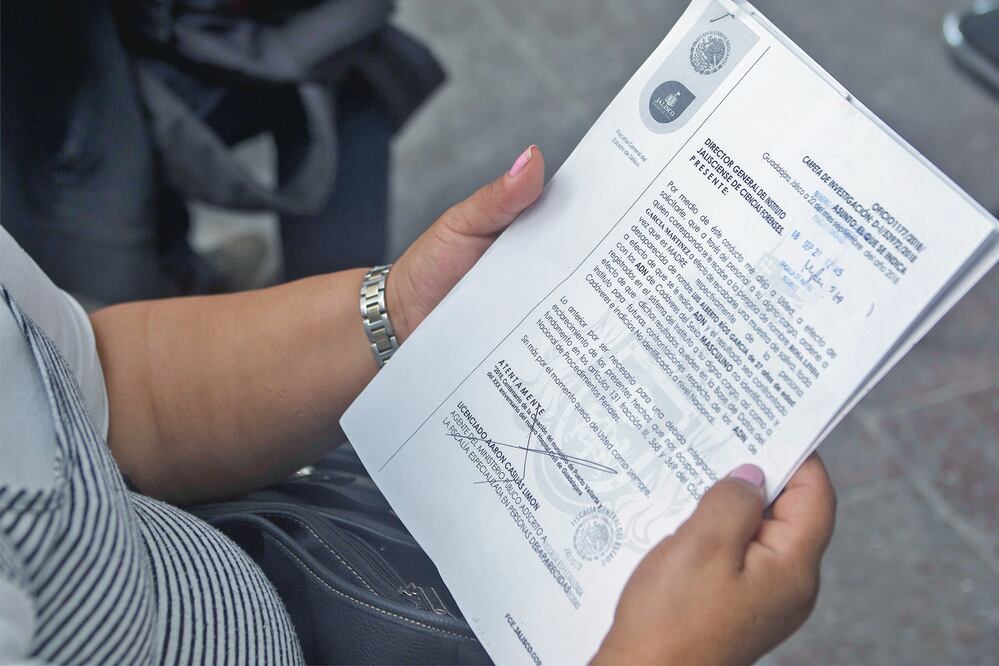 ESTADOS UNIDOS MEXICANOS
JALISCO
Fiscalía General del
Estado de Jalisco
OFICIO:1177/2018/
CARPETA DE INVESTIGACIÓN: D-I/
ASUNTO: EL QUE SE INDICA
Guadalajara, Jalisco a 27 de septiembre del año 2018
18 SEP 27 12:45
DIRECTOR GENERAL DEL INSTITUTO
JALISCIENSE DE CIENCIAS FORENSES.
P R E S E N T E:
Por medio de éste conducto me dirijo a Usted, a efecto de
solicitarle, que a través de personal a su digno cargo, ordene a
quien corresponda, se le recabe a la persona de nombre
GARCÍA MARTÍNEZ, a efecto de recabarle una muestra de saliva, toda
vez que es MADRE respectivamente de la persona
desaparecida de nombre LUIS ALBERTO RÍOS GARCÍA de 27 años de edad
a efecto de que se le realice ADN y el resultado sea confrontado
con los ADN de Cadáveres del Sexo MASCULINO no identificados y
registrados en el sistema del Instituto a su digno cargo, así como a
efecto de que dichos resultados queden en la Base de Datos del
Instituto para futuras confrontaciones respecto de los ADN de
Cadáveres e indicios No identificados a nivel Nacional.
Lo anterior por ser necesario para una debida integración
esclarecimiento de los presentes hechos que nos ocupan
fundamento en los artículos 131 fracción III, 368 y 369 del Código
Nacional de Procedimientos Penales.
Sin más por el momento quedo de Usted como siempre.
A T E N T A M E N T E
"2018, Centenario de la Creación del municipio de Puerto Vallarta y
del XXX aniversario del nuevo Hospital Civil de Guadalajara"
LICENCIADO AARON CASILLAS LIMON
AGENTE DEL MINISTERIO PÚBLICO, ADSCRITO A
LA FISCALÍA ESPECIALIZADA EN PERSONAS DESAPARECIDAS
FISCALÍA GENERAL DEL ESTADO
FGE.JALISCO.GOB